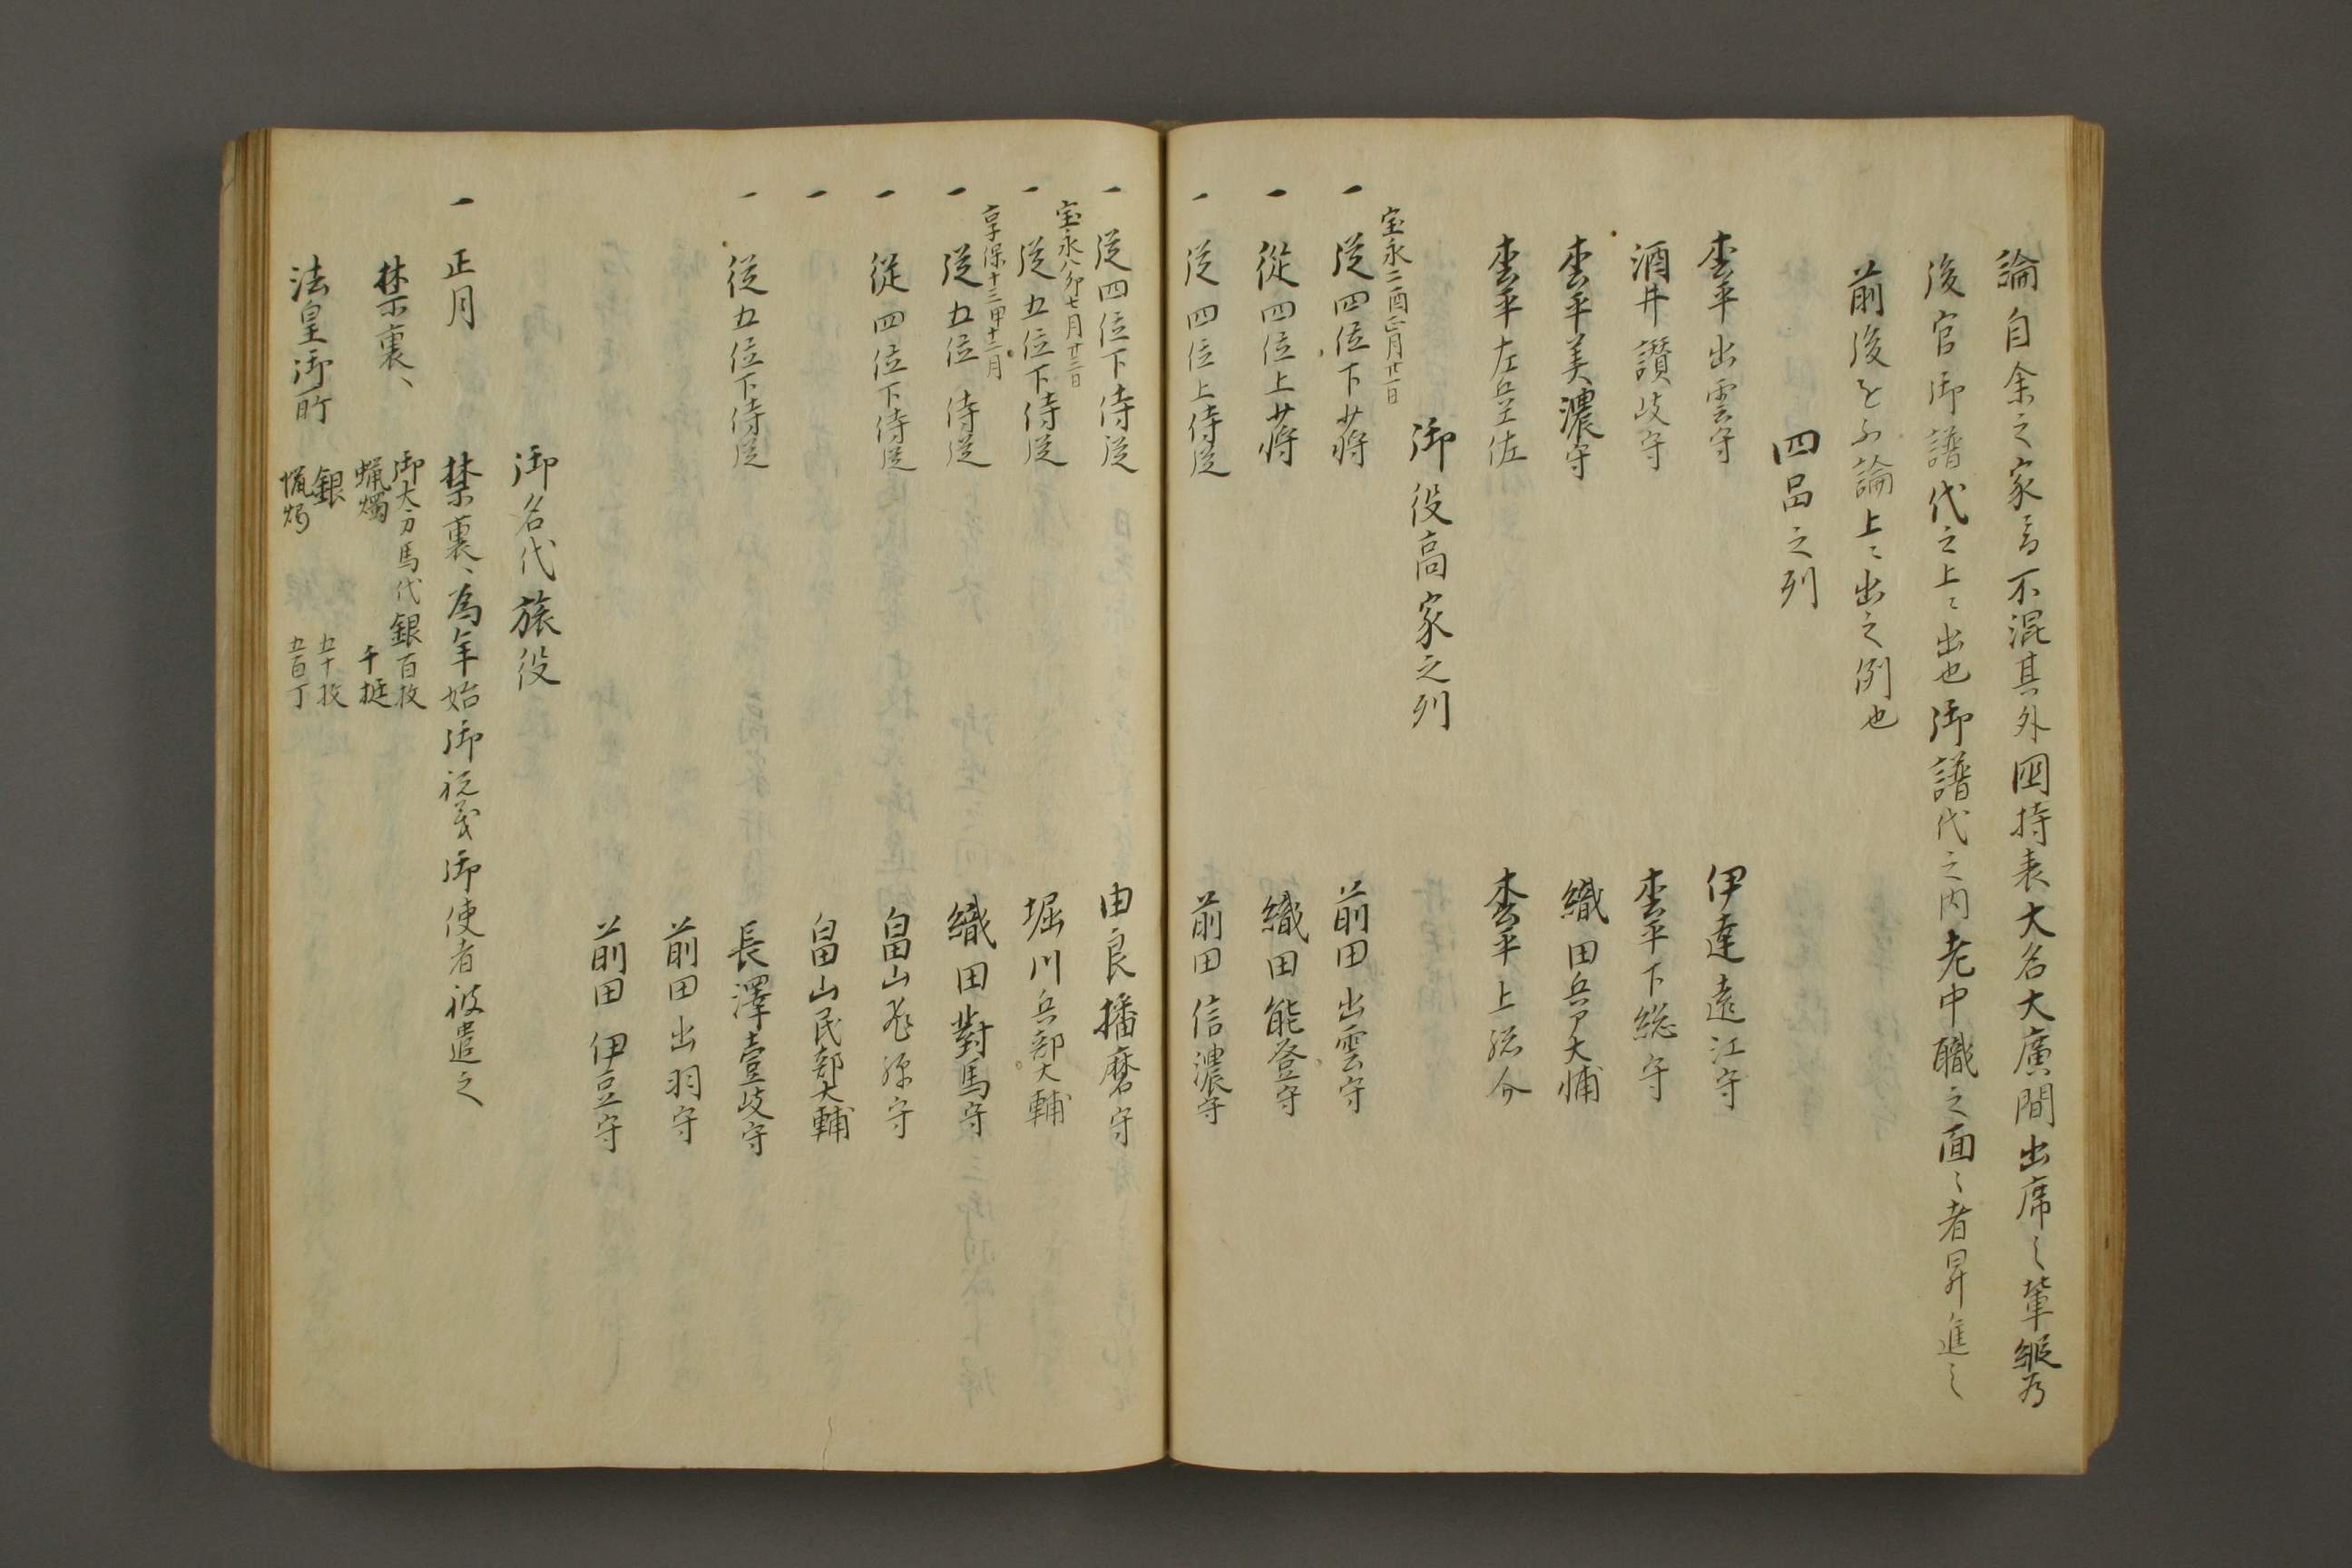 論自余之家ニ不混其外国持表大名大廣間出席之輩縦為
後官御譜代之上ニ出也御譜代之内老中職之面々者昇進之
前後をふ論上ニ出之例也
四品之列
松平出雲守 伊達遠江守
酒井讃岐守 松平下総守
松平美濃守 織田兵ア大輔
松平左兵衛佐 松平上総介
御役高家之列
宝永二酉正月廿一日
一 従四位下少将 前田出雲守
一 従四位上少将 織田能登守
一 従四位上侍従 前田信濃守
一 従四位下侍従 由良播磨守
宝永八卯七月廿三日
一 従五位下侍従 堀川兵部大輔
享保十三申十二月
一 従五位侍従 織田對馬守
一 従四位下侍従 畠山飛弾守
一 畠山民部大輔
一 従五位下侍従 長澤壹岐守
前田出羽守
前田伊豆守
御名代旅役
一 正月 禁裏ヘ為年始御祝義御使者被遣之
禁裏ヘ 御太刀馬代銀百枚
蝋燭 千挺
法皇御所 銀 五十枚
蝋燭 五百丁